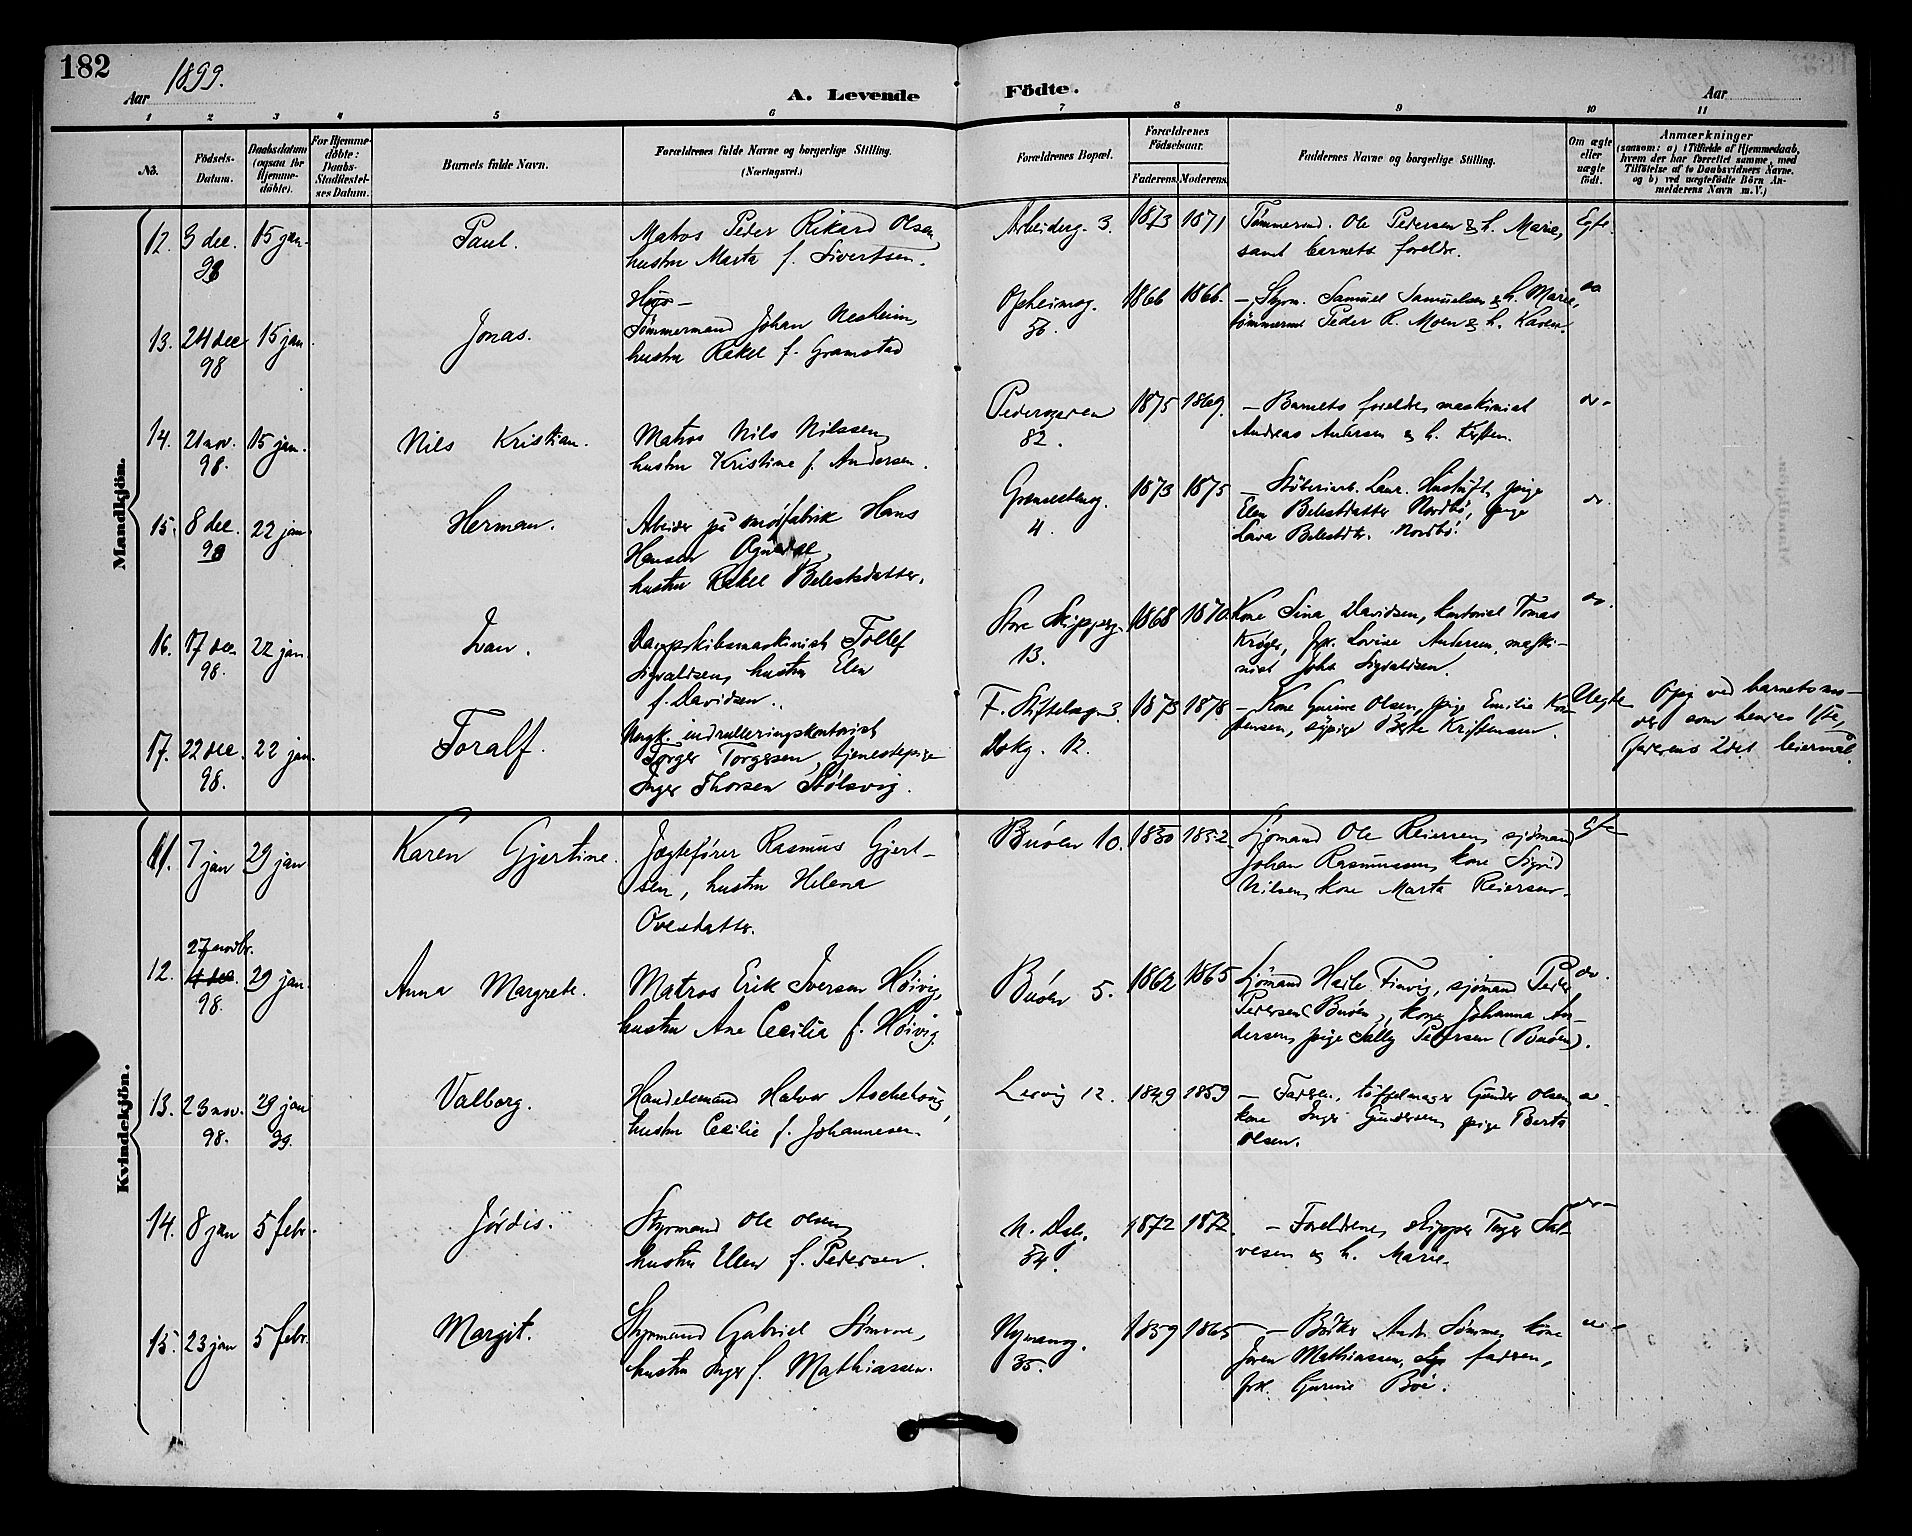 182
Aar 1899.
A. Levende Födte.
Aar
1 2 3 4 5 6 7 8 9 10 11
No.
Födsels-
Datum.
Daabsdatum
(ogsaa for
Hjemme-
døbte).
For Hjemme-
døbte:
Daabs-
Stadfæstel-
ses Datum.
Barnets fulde Navn.
Forældrenes fulde Navne og borgerlige Stilling.
(Næringsvei.)
Forældrenes Bopæl.
Forældrenes
Fødselsaar.
Faderens. Moderens.
Faddernes Navne og borgerlige Stilling.
Om ægte
eller
uægte
født.
Anmærkninger
(saasom: a) i Tilfælde af Hjemmedaab,
hvem der har forrettet samme, med
Tilføielse af to Daabsvidners Navne.
og b) ved uægtefødte Börn An-
melderens Navn m. V.)
Mandkjön.
12. 3 dec. 98 15 jan. Paul.
Matros Peder Rikard Olsen,
hustru Marta f. Sivertsen.
Arbeiderg. 3. 1873 1871
Tømmermd. Ole Pedersen & h. Marie,
samt barnets foreldre.
Egte.
13. 24 dec 98 15 jan Jonas.
Hus-
Tømmermand Johan Nesheim,
hustru Rakel f. Gramstad
Opheimsg. 56. 1866 1866.
– Styrm. Samuel Samuelsen & h. Marie,
tømmermd Peder R. Moen & h. Karen.
do
14. 21 nov. 98. 15 jan. Nils Kristian.
Matros Nils Nilssen,
hustru Kristine f. Andersen.
Pedersgaden 82. 1875 1869.
– Barnets foreldre, maskinist
Andreas Andersen & h. Kirsten.
do-
15. 8 dec 98 22 jan Herman.
Arbeider på smørfabrik Hans
Hansen Ognedal,
hustru Rakel Belestsdatter.
Grønsestensg. 4. 1873 1875
– Støberiarb. Laur. pige
Elen Belestdatter Nordbö, pige
Lava Belestdtr. Nordbö.
do.
16. 17 dec 98. 22 jan Ivan.
Dampskibsmaskinist Tollef
Sigvaldsen, hustru Elen
f. Davidsen.
Store Skipperg. 13. 1868 1870.
Kone Sina Davidsen, kontorist Tomas
Krøger, frk. Lovise Andersen, maski-
nist Johs Sigvaldsen.
do.
17. 22 dec. 98. 22 jan. Toralf.
indrulleringskontorist
Torger Torgersen, tjenestepige
Inger Thorsen Stölsvig.
F. Stiftelseg. 3.
Dokg. 12.
1873 1878
– Kone Gurine Olsen, pige Emilie Kon-
stensen, sypige Berte Kristensen.
Uegte
Opg ved barnets mo-
der som hennes 1ste,
faderens 2det leiermål.
Kvindekjön.
11. 7 jan 29 jan Karen Gjertine.
Jægtefører Rasmus Gjert-
sen, hustru Helena
Ovesdatter.
Buöen 10. 1850 1852.
Sjömand Ole Reiersen, sjömand
Johan Rasmussen, kone Sigrid
Nilsen, kone Marta Reiersen.
Egte
12. 27 novbr. 4 dec. 98. 29 jan. Anna Margrete.
Matros Erik Iversen Höivig,
hustru Ane Cecilia f. Höivig.
Buöen 5. 1862 1865
Sjömand Finvig, sjömand Peder
Pedersen (Buöen), kone Johanna An-
dersen, pige Sally Petersen (Buöen).
do.
13. 23 nov. 98. 29 jan 99. Valborg.
Handelsmand Halvor Aschehoug,
hustru Cecilie f. Johannesen.
Lervig 12. 1849 1859
– Faderen, töffelmager Gunder Olsen,
kone Inger Gundersen, pige Berta
Olsen.
do.
14. 8 jan 5 febr. Jórdis.
Styrmand Ole Olsen,
hustru Ellen f. Pedersen.
N. Dalg. 54. 1872 1872.
– Foreldrene, skipper Tager Sal-
vesen og h. Marie.
do-
15. 23 jan 5 febr. Margit.
Styrmand Gabriel Sömme,
hustru Inger f. Mathiassen.
Nymansg. 35. 1859 1865
– Bödker Andr. Sömme, kone
Joren Mathiassen, faderen,
frk. Gurine Böe.
do-